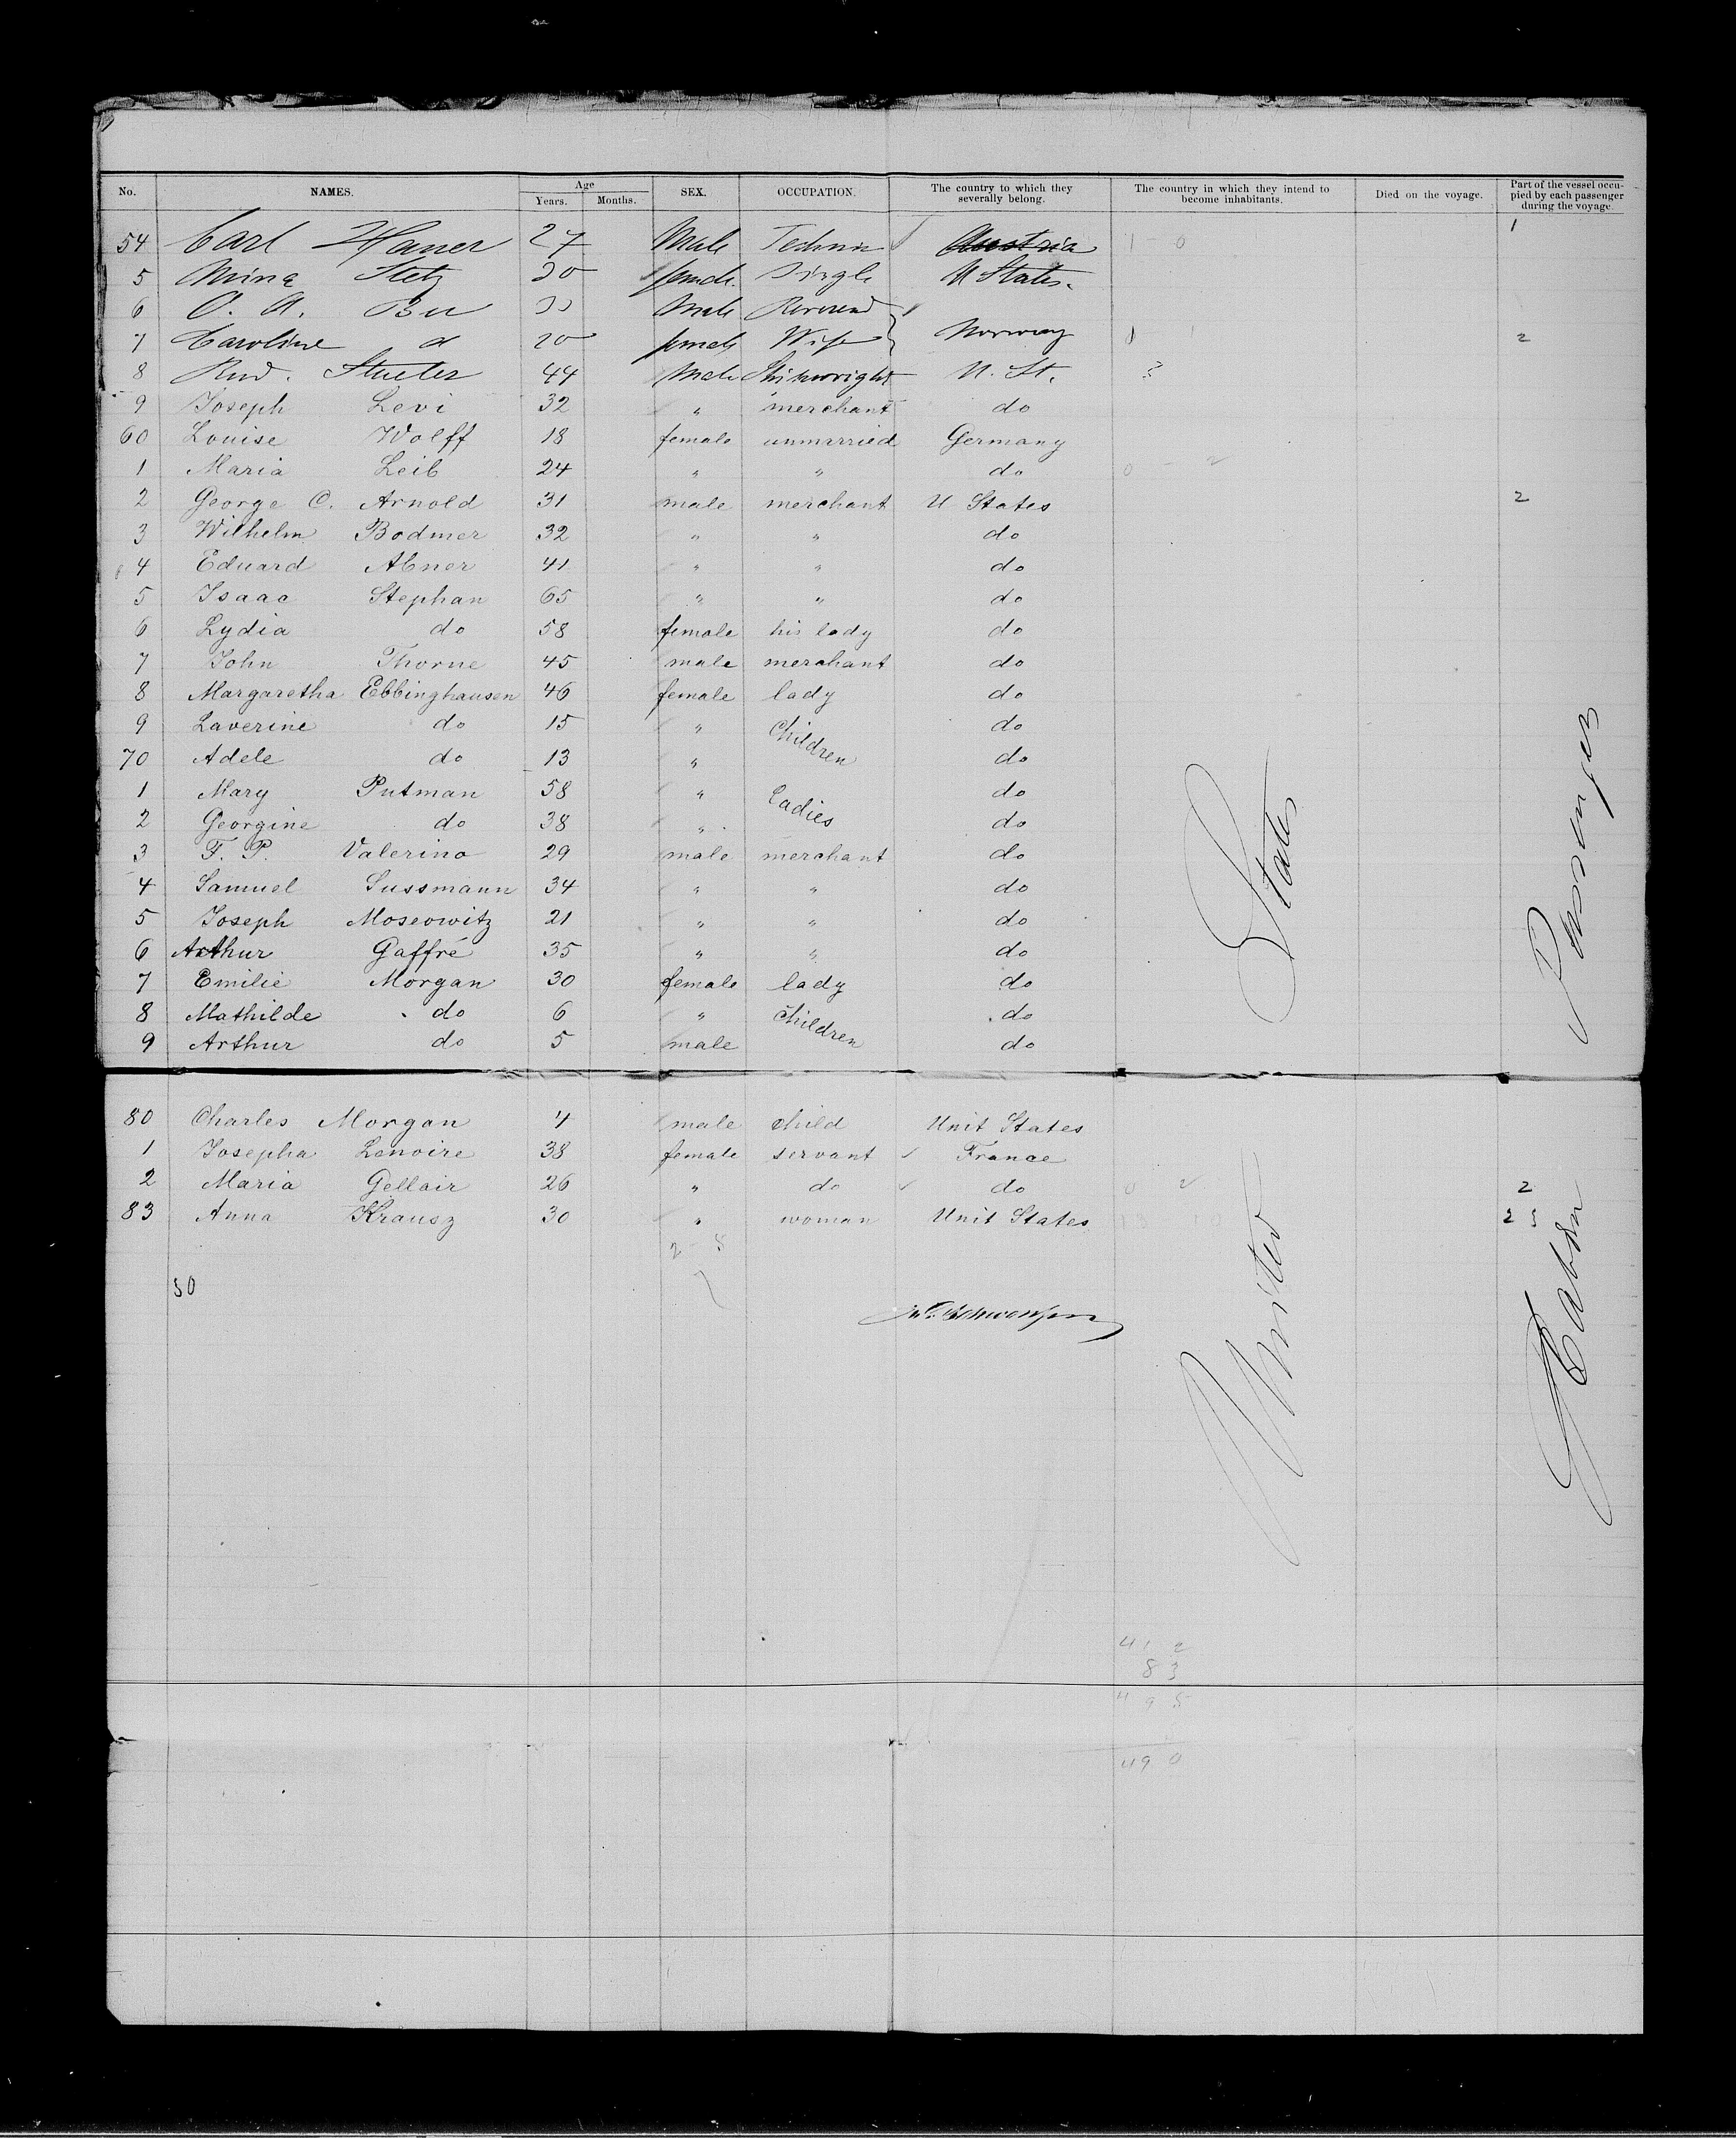 No. NAMES. Age Years. Months. SEX. OCCUPATION. The country to which they severally belong. The country in which they intend to become inhabitants. Died on the voyage. Part of the vessel occupied by each passenger during the voyage.
54 Carl Haner 27 Male Technic Austria 1
5 Mina Stetz female Single U States.
6 O. A. Male Reverend
7 Caroline d 20 female Wife Norway 2
8 Rud. Stueler 44 Male U. St.
9 Joseph Levi 32 " merchant do
60 Louise Wolff 18 female unmarried Germany
1 Maria Leib 24 " " do
2 George C. Arnold 31 male merchant U States 2
3 Wilhelm Bodmer 32 " " do
4 Eduard Abner 41 " " do
5 Isaac Stephan 65 " " do
6 Lydia do 58 female his lady do
7 John Thorne 45 male merchant do
8 Margaretha Ebbinghausen 46 female lady do
9 Laverine do 15 " Children do
70 Adele do 13 " do
1 Mary Putman 58 " Ladies do
2 Georgine do 38 " do
3 F. P. Valerino 29 male merchant do
4 Samuel Sussmann 34 " " do
5 Joseph Moseowitz 21 " " do
6 Arthur Gaffré 35 " " do
7 Emilie Morgan 30 female lady do
8 Mathilde do 6 " Children do
9 Arthur do 5 male do
80 Charles Morgan 4 male child Unit States
1 Josepha Lenoire 38 female servant France
2 Maria Gellair 26 " do do 2
83 Anna Krausz 30 " woman Unit States
United States
Cabin Passenger
412
83
495
490